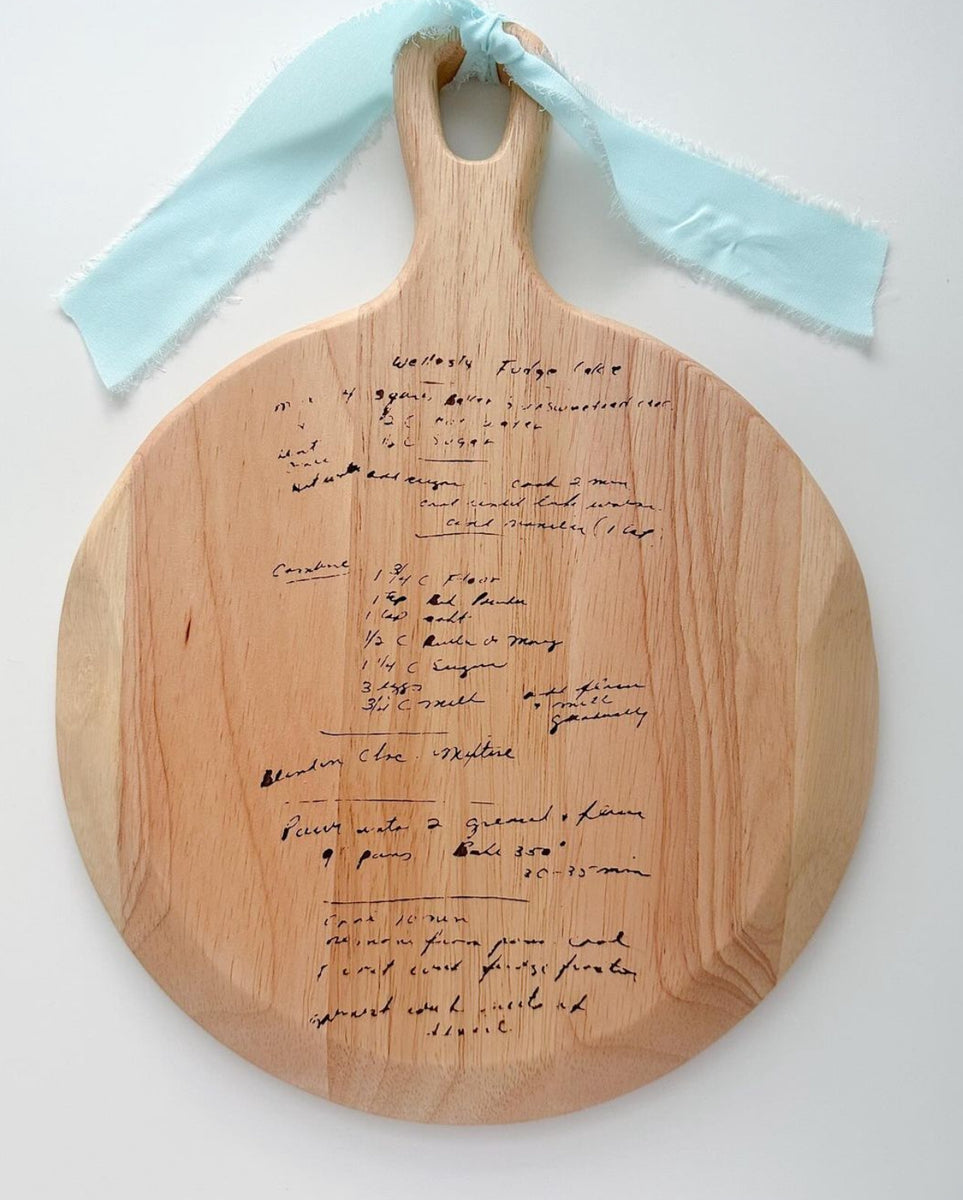 Wellesly Fudge Cake
4 squares Baker's unsweetened choc.
1/2 C Hot Water
1/2 C Sugar
add sugar cook 2 min
cool until luke warm
add vanilla (1 tsp.
Combine
1 3/4 C Flour
1 tsp Bak Powder
1 tsp salt
1/2 C Butter or Marg
1 1/4 C Sugar
3 eggs
3/4 C milk
add flour
+ milk
gradually
Blend in Choc. Mixture
Pour into 2 greased + flour
9" pans Bake 350°
30-35 min
Cool 10 min
remove from pans cool
frost with fudge frosting